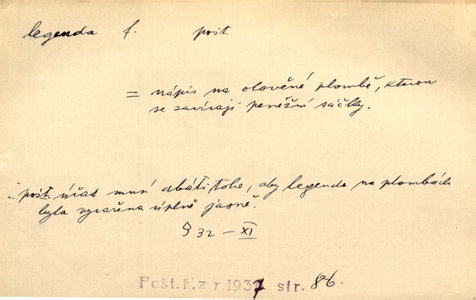 legenda f. pošt
= nápis na olověné plombě, kterou
se zavírají peněžní sáčky.
„pošt. úřad musí dbáti toho, aby legenda na plombách
byla vyražena úplně jasně.
§ 32 – XI
Pošt. ř. z r. 1937 str. 86.